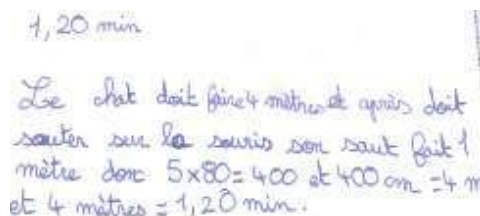 1,20 min
Le chat doit faire 4 mètres et après doit
sauter sur la souris son saut fait 1
mètre donc 5x80=400 et 400 cm =4 m
et 4 mètres = 1,20 min.